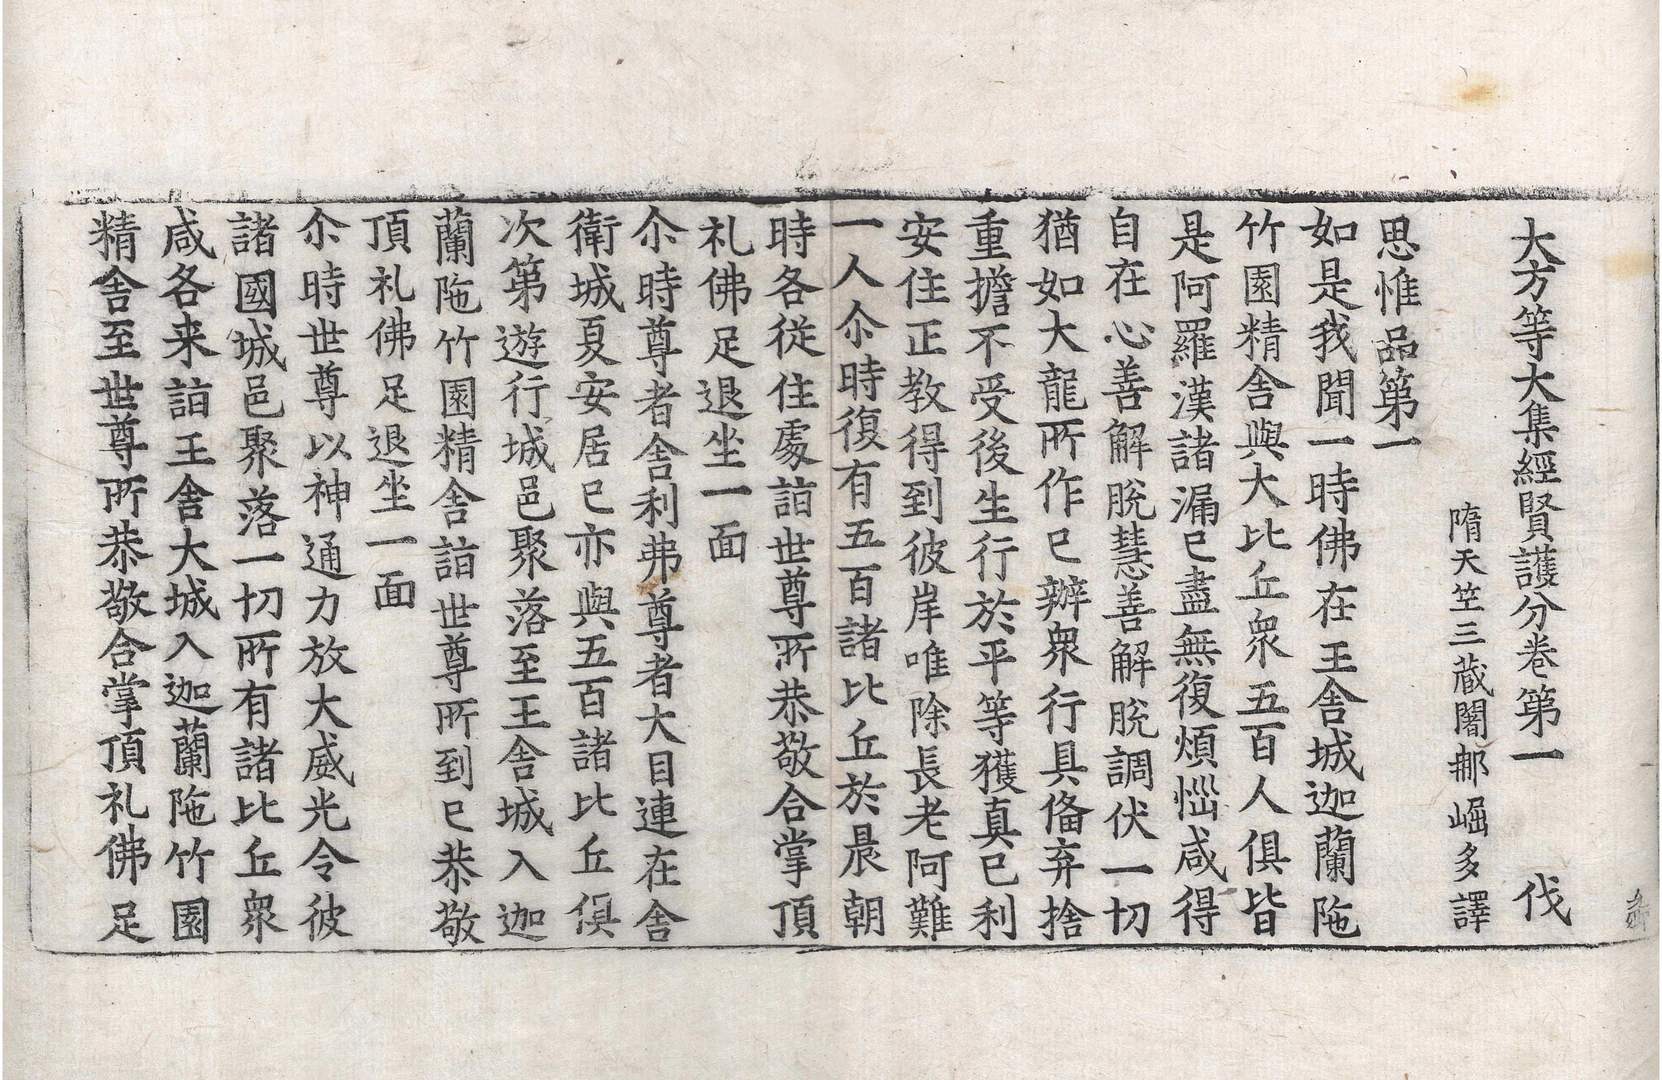 大方等大集經賢護分卷第一 伐
隋天竺三藏闍那崛多譯
思惟品第一
如是我聞一時佛在王舍城迦蘭陁
竹園精舍與大比丘衆五百人俱皆
是阿羅漢諸漏已盡無復煩惱咸得
自在心善解脫慧善解脫調伏一切
猶如大龍所作已辦衆行具俻弃捨
重擔不受後生行於平等獲真已利
安住正教得到彼岸唯除長老阿難
一人尒時復有五百諸比丘於晨朝
時各從住處詣世尊所恭敬合掌頂
礼佛足退坐一面
尒時尊者舍利弗尊者大目連在舍
衛城夏安居已亦與五百諸比丘俱
次第遊行城邑聚落至王舍城入迦
蘭陁竹園精舍詣世尊所到已恭敬
頂礼佛足退坐一面
尒時世尊以神通力放大威光令彼
諸國城邑聚落一切所有諸比丘衆
咸各来詣王舍大城入迦蘭陁竹園
精舍至世尊所恭敬合掌頂礼佛足